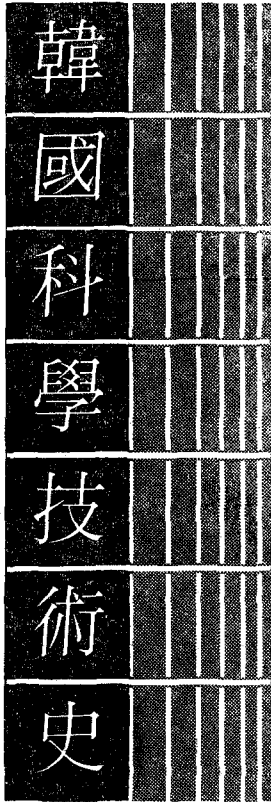 韓國科學技術史